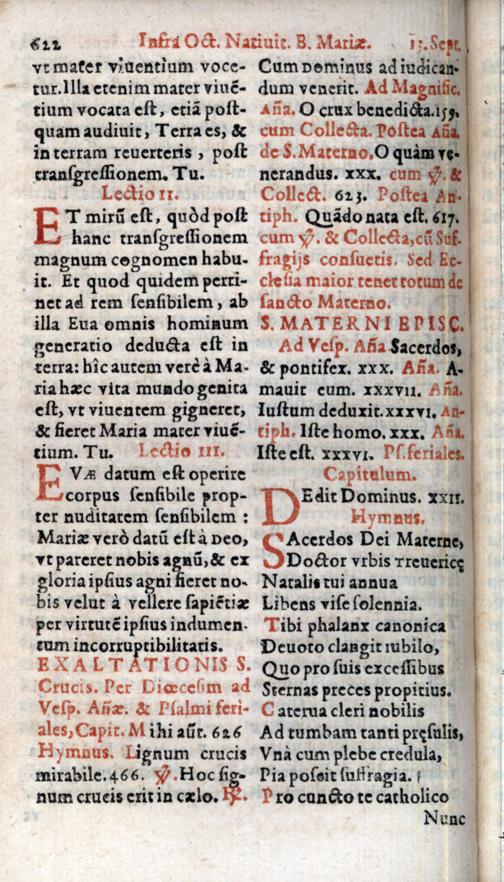 622 Infra Oct. Natiuit. B. Mariæ. 13. Sept.
vt mater viuentium voce-
tur. Illa etenim mater viuē-
tium vocata est, etiā post-
quam audiuit, Terra es, &
in terram reuerteris, post
transgressionem. Tu.
Lectio II.
ET mirū est, quòd post
hanc transgressionem
magnum cognomen habu-
it. Et quod quidem perti-
net ad rem sensibilem, ab
illa Eua omnis hominum
generatio deducta est in
terra: hîc autem verè à Ma-
ria hæc vita mundo genita
est, vt viuentem gigneret,
& fieret Maria mater viuē-
tium. Tu. Lectio III.
EVÆ datum est operire
corpus sensibile prop-
ter nuditatem sensibilem:
Mariæ verò datū est à DEO,
vt pareret nobis agnū, & ex
gloria ipsius agni fieret no-
bis velut à vellere sapiētiæ
per virtutē ipsius indumen-
tum incorruptibilitatis.
EXALTATIONIS S.
Crucis. Per Diœcesim ad
Vesp. Añæ. & Psalmi feri-
ales, Capit. Mihi aūt. 626
Hymnus. Lignum crucis
mirabile. 466. ℣. Hoc sig-
num crucis erit in cælo. ℟.
Cum Dominus ad iudican-
dum venerit. Ad Magnific.
Aña. O crux benedicta. 159.
cum Collecta. Postea Aña.
de S. Materno. O quàm ve-
nerandus. XXX. cum ℣. &
Collect. 623. Postea An-
tiph. Quādo nata est. 617.
cum ℣. & Collecta, cū Suf-
fragijs consuetis. Sed Ec-
clesia maior tenet totum de
sancto Materno.
S. MATERNI EPISC.
Ad Vesp. Aña Sacerdos,
& pontifex. XXX. Aña. A-
mauit eum. XXXVII. Aña.
Iustum deduxit. XXXVI. An-
tiph. Iste homo. XXX. Aña.
Iste est. XXXVI. Ps. feriales.
Capitulum.
DEdit Dominus. XXII.
Hymnus.
SAcerdos Dei Materne,
Doctor vrbis Treuericę
Natalis tui annua
Libens vise solennia.
Tibi phalanx canonica
Deuoto clangit iubilo,
Quo pro suis excessibus
Sternas preces propitius.
Caterua cleri nobilis
Ad tumbam tanti pręsulis,
Vnà cum plebe credula,
Pia poscit suffragia.
Pro cuncto te catholico
Nunc